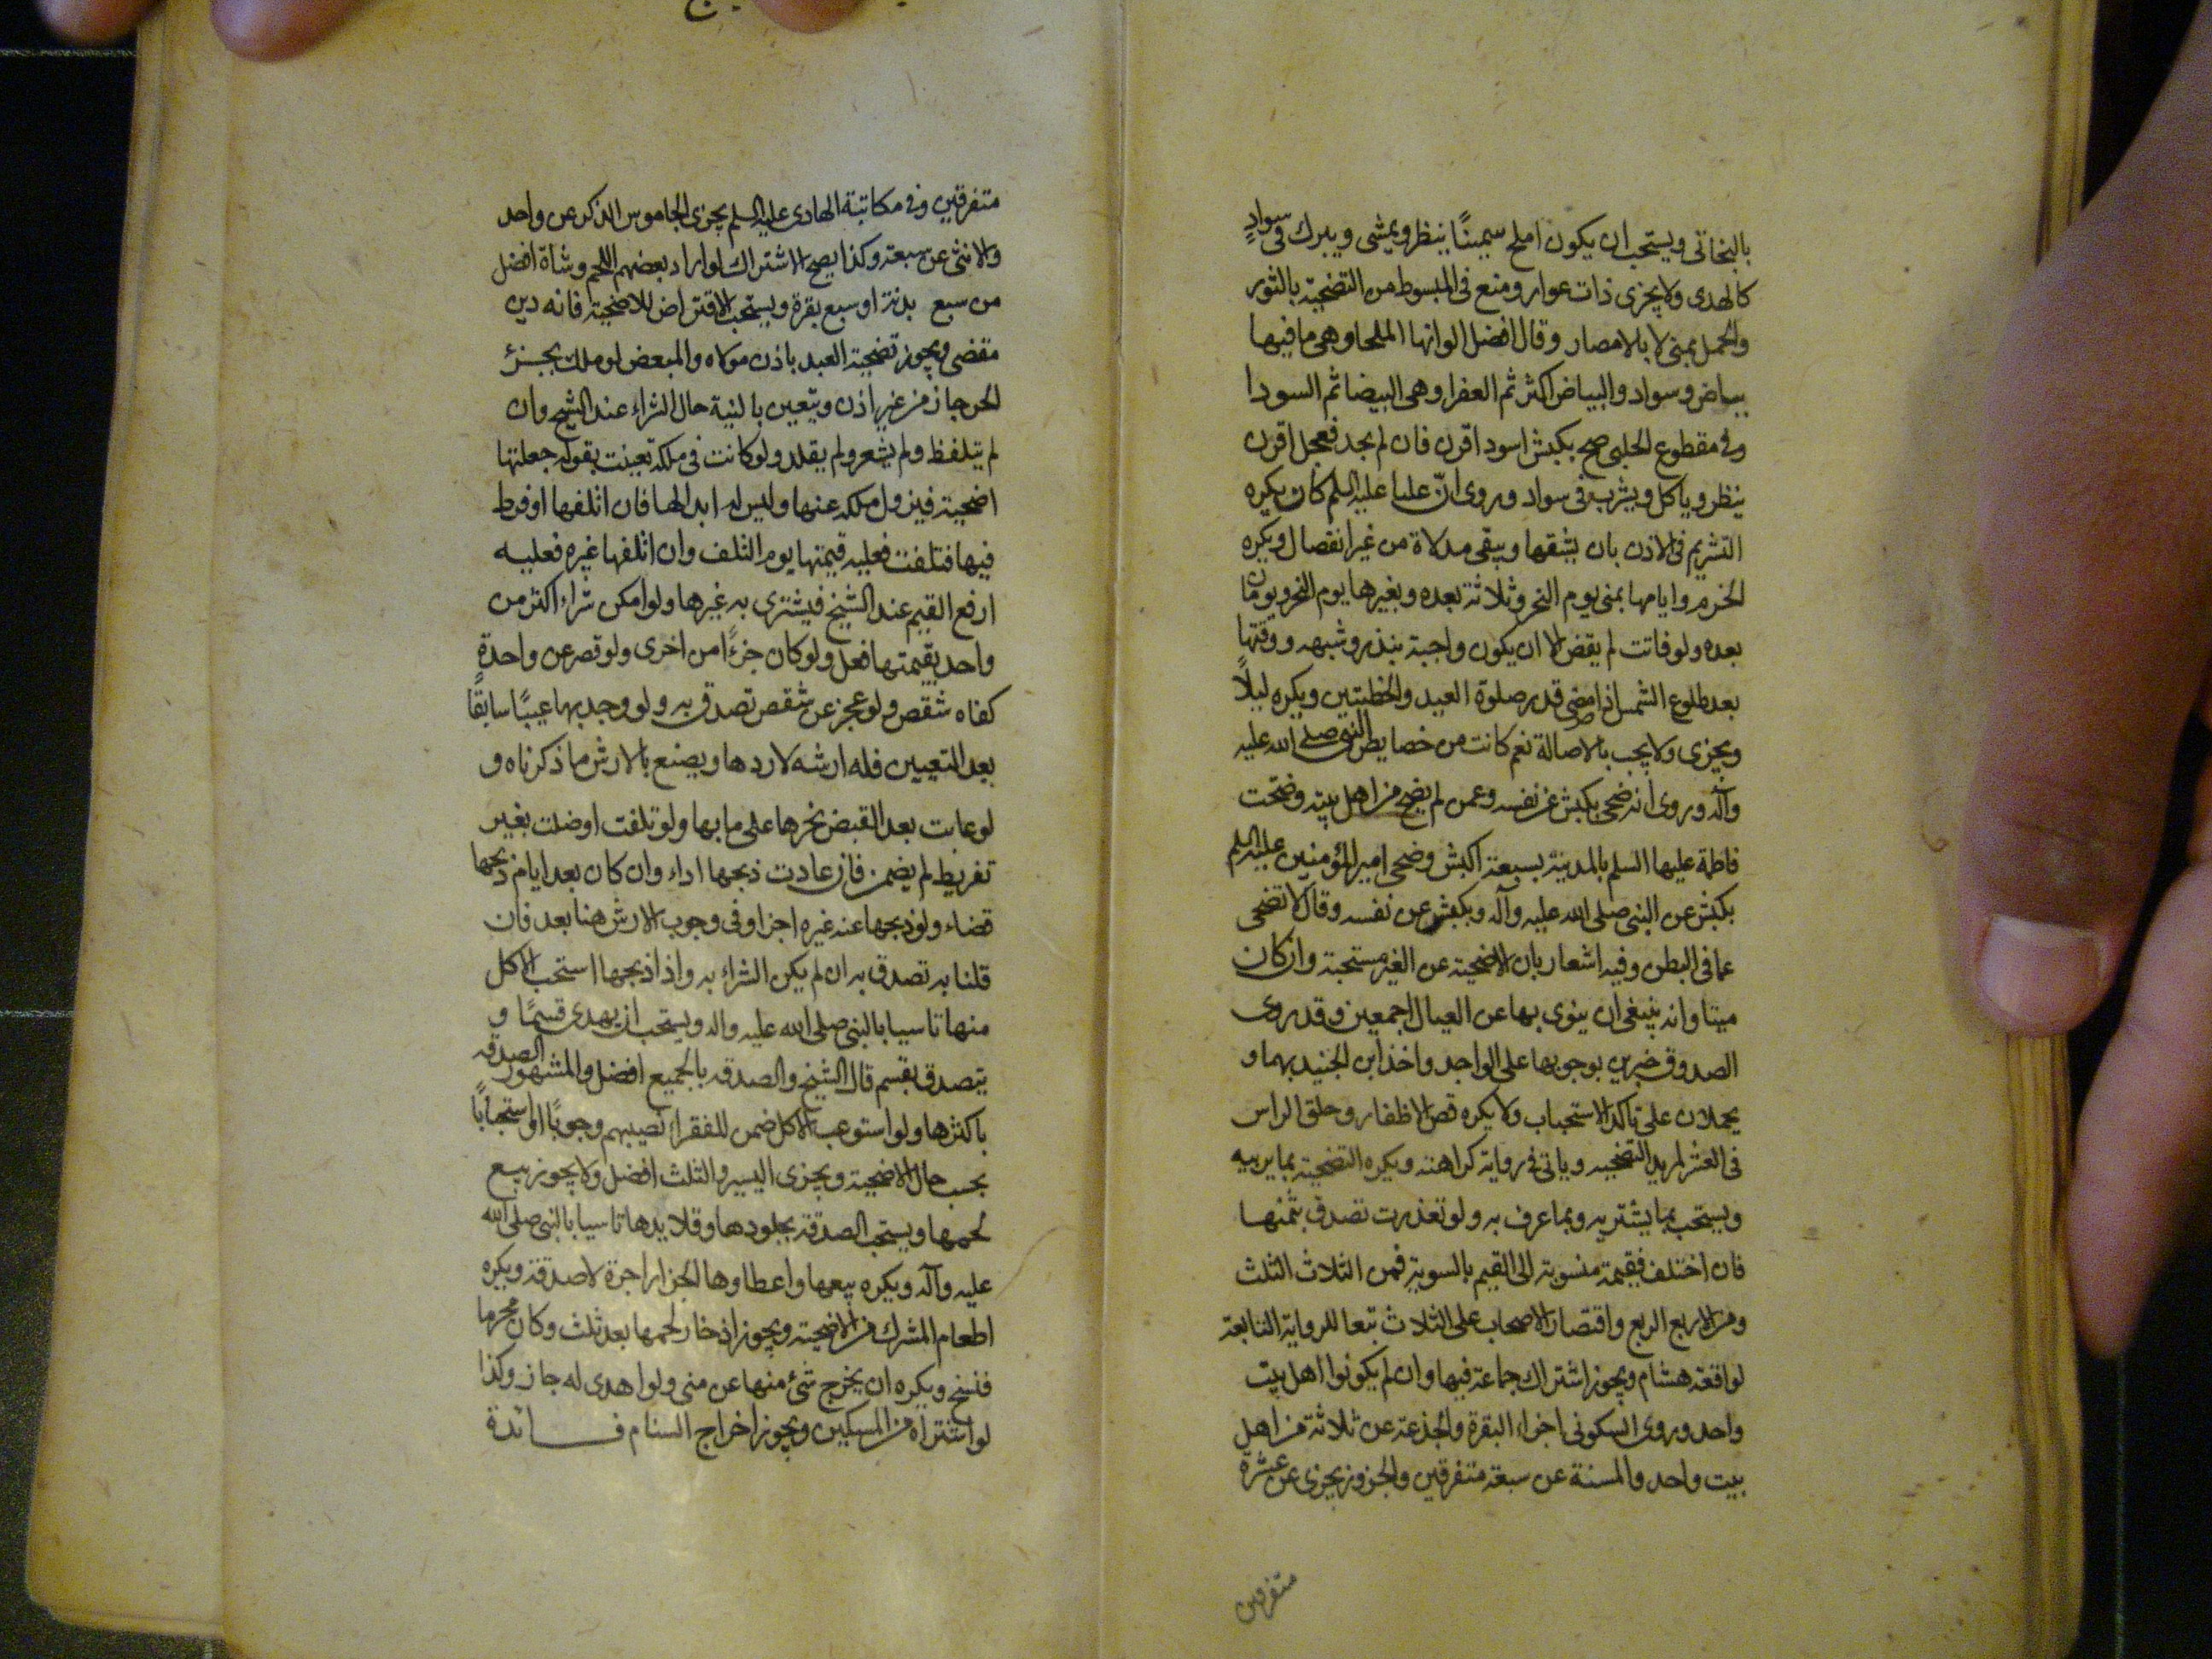 بالبخاتى ويستحب ان يكون املح سمينًا ينظر ويمشى ويبرك فى سوادٍ
كالهدى ولا يجزى ذات عوار ومنع فى المبسوط من التضحية بالثور
والجمل بمنى لا بالامصار وقال افضل الوانها الملحا وهى ما فيها
بياض وسواد والبياض اكثر ثم العفرا وهى البيضا ثم السودا
وفى مقطوع الحلبى صح بكبش اسود اقرن فان لم يجد فعجل اقرن
ينظر وياكل ويشرب فى سواد وروى انّ عليا عليه السلم كان يكره
التشريم فى الاذن بان يشقها ويبقى مدلاة من غير انفصال ويكره
الخرم وايامها بمنى يوم النحر وثلاثة بعده وبغيرها يوم النحر ويومان
بعده ولو فاتت لم يقض الا ان يكون واجبة بنذر وشبهه ووقتها
بعد طلوع الشمس اذا مضى قدر صلوة العيد والخطبتين ويكره ليلًا
ويجزى ولا يجب بالاصالة نعم كانت من خصايص النبى صلى الله عليه
وآله وروى انه ضحى بكبش عن نفسه وعمن لم يضح من اهل بيته وضحت
فاطمة عليها السلم بالمدينة بسبعة اكبش وضحى امير المؤمنين عليه السلم
بكبش عن النبى صلى الله عليه وآله وبكبش عن نفسه وقال لا تضحى
عما فى البطن وفيه اشعار بان الاضحية عن الغير مستحبة وان كان
ميتا وانه ينبغى ان ينوى بها عن العيال اجمعين وقد روى
الصدوق خبرين بوجوبها على الواجد واخذ ابن الجنيد بهما و
يحملان على تاكد الاستحباب ولا يكره قص الاظفار وحلق الراس
فى العشر لمريد التضحيه وياتى فى رواية كراهته ويكره التضحية بما يربيه
ويستحب بما يشتريه وبما عرف به ولو تعذرت تصدق بثمنها
فان اختلف فقيمة منسوبة الى القيم بالسوية فمن الثلاث الثلث
ومن الاربع الربع واقتصار الاصحاب على الثلاث تبعا للرواية التابعة
لواقعة هشام ويجوز اشتراك جماعة فيها وان لم يكونوا اهل بيت
واحد وروى السكونى اجزاء البقرة والجذعة عن ثلاثة من اهل
بيت واحد والمسنة عن سبعة متفرقين والجزور يجزى عن عشرة
متفرقين
متفرقين وفى مكاتبة الهادى عليه السلم يجزى الجاموس الذكر عن واحد
والانثى عن سبعة وكذا يصح الاشتراك لو اراد بعضهم اللحم وشاة افضل
من سبع بدنة او سبع بقرة ويستحب الاقتراض للاضحية فانه دين
مقضى ويجوز تضحية العبد باذن مولاه والمبعض لو ملك بجزئ
الحر جاز من غير اذن ويتعين بالنية حال الشراء عند الشيخ وان
لم يتلفظ ولم يشعر ولم يقلد ولو كانت فى ملكه تعينت بقوله جعلتها
اضحية فيزول ملكه عنها وليس له ابدالها فان اتلفها او فرط
فيها فتلفت فعليه قيمتها يوم التلف وان اتلفها غيره فعليه
ارفع القيم عند الشيخ فيشترى به غيرها ولو امكن شراء اكثر من
واحد بقيمتها فعل ولو كان جزءًا من اخرى ولو قصر عن واحدة
كفاه شقص ولو عجز عن شقص تصدق به ولو وجد بها عيبًا سابقًا
بعد التعيين فله ارشه لا ردها ويصنع بالارش ما ذكرناه و
لو عابت بعد القبض نحرها على ما بها ولو تلفت او ضلت بغير
تفريط لم يضمن فان عادت ذبحها اداء وان كان بعد ايام ذبحها
قضاء ولو ذبحها عنه غيره اجزا وفى وجوب الارش هنا بعد فان
قلنا به تصدق به ان لم يكن الشراء به واذا ذبحها استحب الاكل
منها تاسيا بالنبى صلى الله عليه واله ويستحب ان يهدى قسمًا و
يتصدق بقسم قال الشيخ والصدقه بالجميع افضل والمشهور الصدقه
باكثرها ولو استوعب الاكل ضمن للفقراء نصيبهم وجوبًا او استحبابًا
بحسب حال الاضحية ويجزى اليسير والثلث افضل ولا يجوز بيع
لحمها ويستحب الصدقة بجلودها وقلايدها تاسيا بالنبى صلى الله
عليه وآله ويكره بيعها واعطاوها الجزار اجرة لا صدقة ويكره
اطعام المشرك من الاضحية ويجوز ادخار لحمها بعد ثلث وكان محرما
فنسخ ويكره ان يخرج شئ منها عن منى ولو اهدى له جاز وكذا
لو اشتراه من المسكين ويجوز اخراج السنام فــــائدة